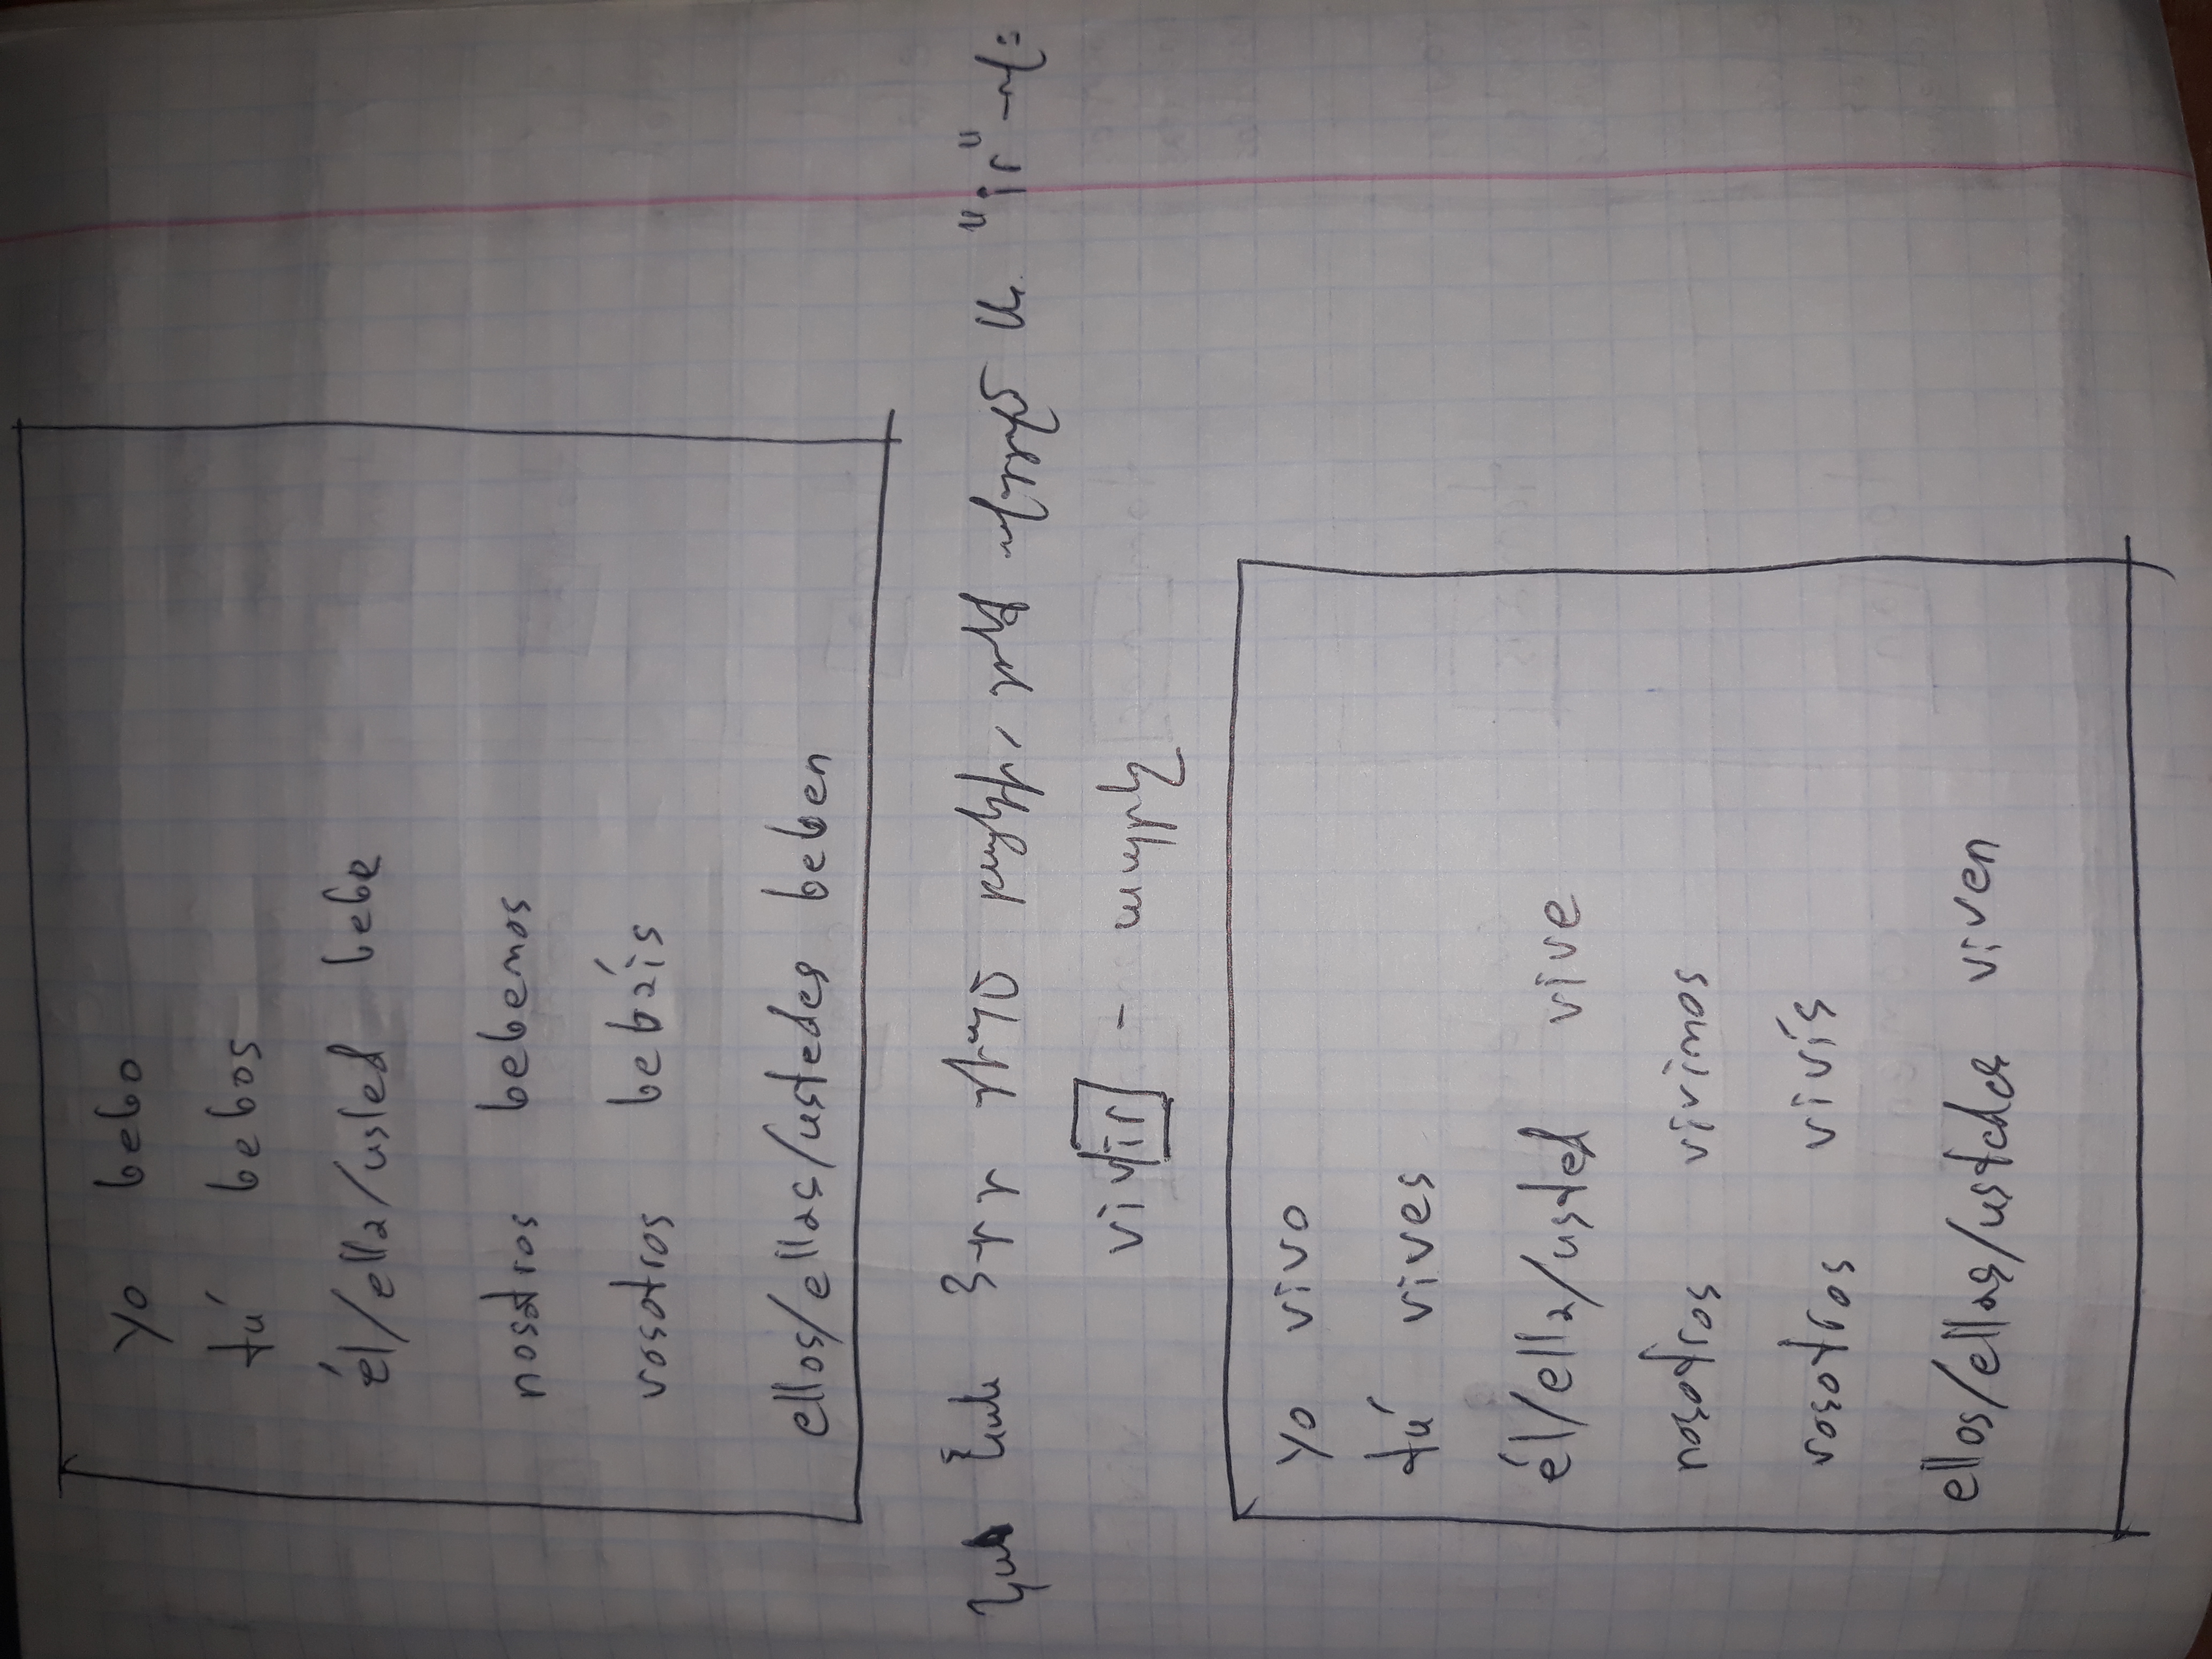 yo bebo
tú bebos
él/ella/usted bebe
nosotros bebemos
vosotros bebáis
ellos/ellas/ustedes beben
կան նաև 3-րդ բայեր, որոնք "ir"-ով։
vivir - ապրել
yo vivo
tú vives
él/ella/usted vive
nosotros vivimos
vosotros vivís
ellos/ellas/ustedes viven